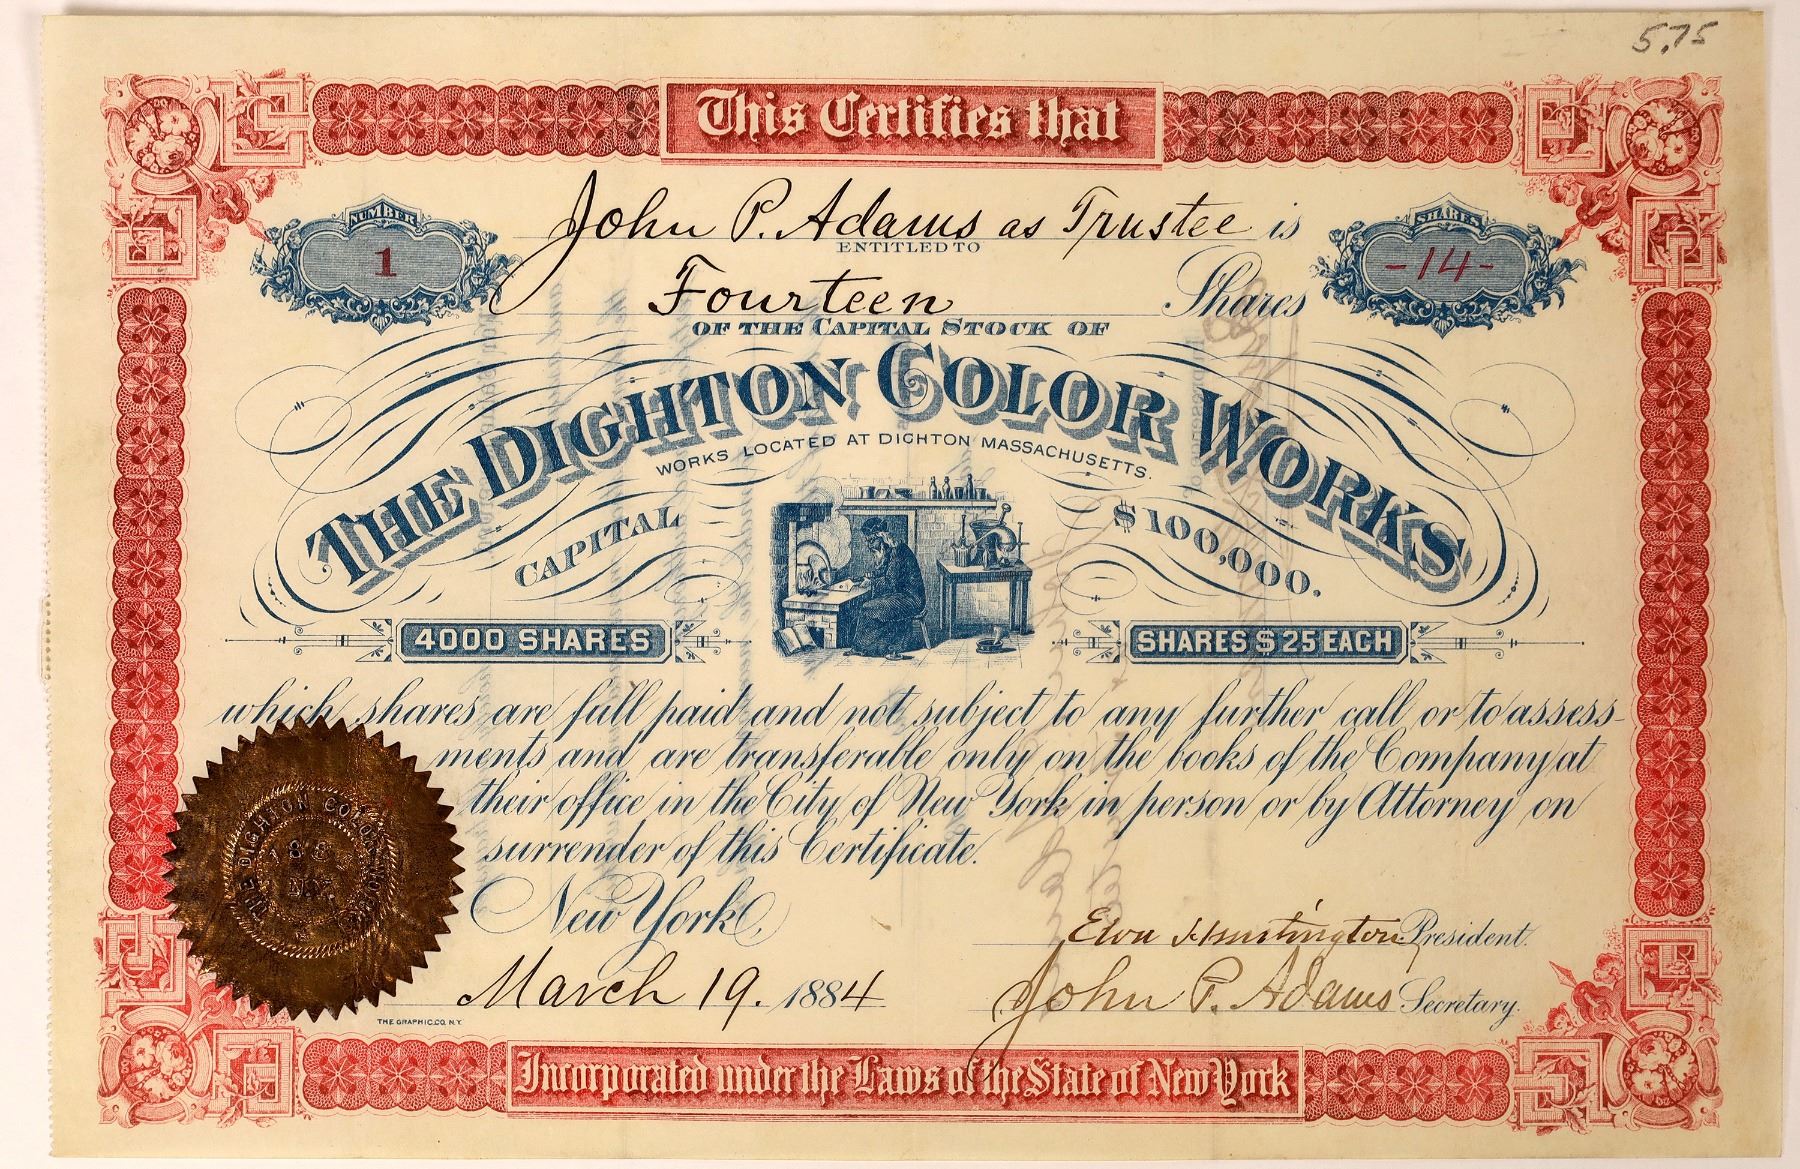 5.75
This Certifies that
NUMBER
1
John P. Adams as Trustee is
ENTITLED TO
SHARES
-14-
Fourteen Shares
OF THE CAPITAL STOCK OF
THE DIGHTON COLOR WORKS
WORKS LOCATED AT DIGHTON MASSACHUSETTS.
CAPITAL $100,000.
4000 SHARES
SHARES $25 EACH
which shares are full paid and not subject to any further call or to assess-
ments and are transferable only on the books of the Company at
their office in the City of New York in person or by Attorney on
surrender of this Certificate.
THE DIGHTON COLOR WORKS
N.Y.
New York,
Huntington President.
March 19. 1884
John P. Adams Secretary.
THE GRAPHIC CO. N.Y.
Incorporated under the Laws of the State of New York